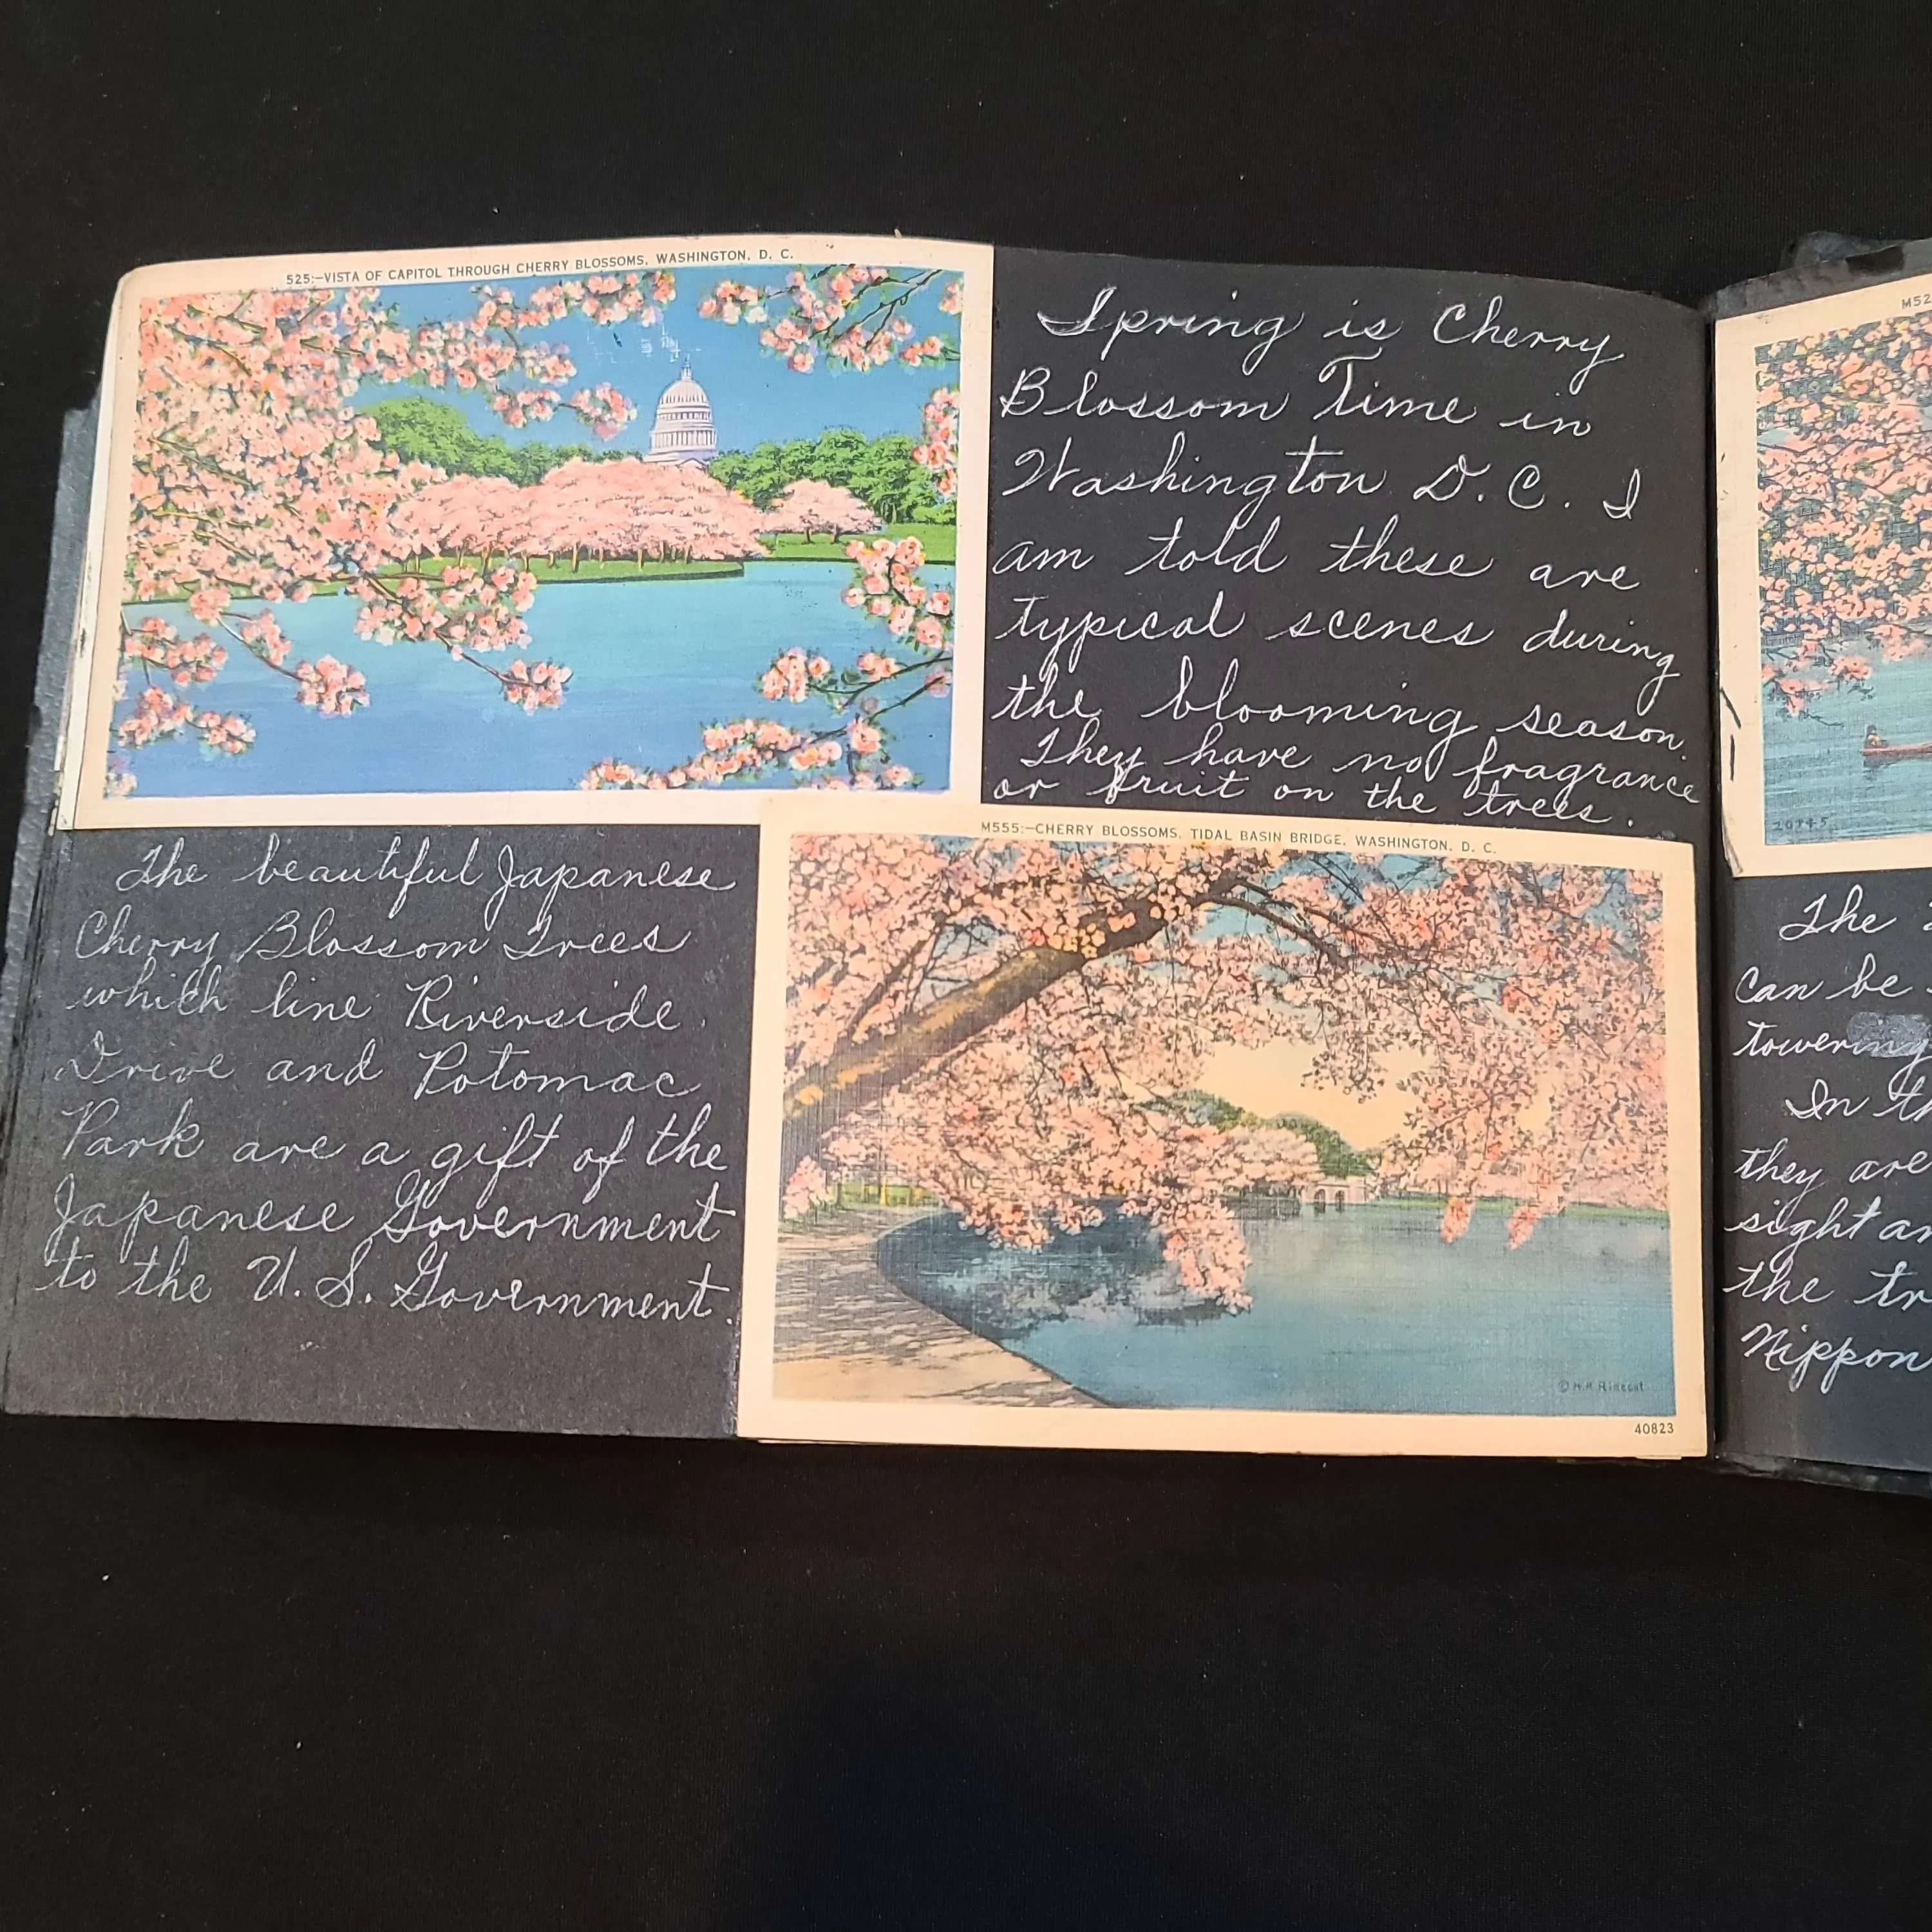 525:—VISTA OF CAPITOL THROUGH CHERRY BLOSSOMS, WASHINGTON, D. C.
Spring is Cherry
Blossom Time in
Washington D.C. I
am told these are
typical scenes during
the blooming season.
They have no fragrance
or fruit on the trees.
The beautiful Japanese
Cherry Blossom Trees
which line Riverside
Drive and Potomac
Park are a gift of the
Japanese Government
to the U.S. Government.
M555:—CHERRY BLOSSOMS, TIDAL BASIN BRIDGE, WASHINGTON, D. C.
40823
M52
20745
The
can be
towering
In th
they are
sight an
the tr
Nippon